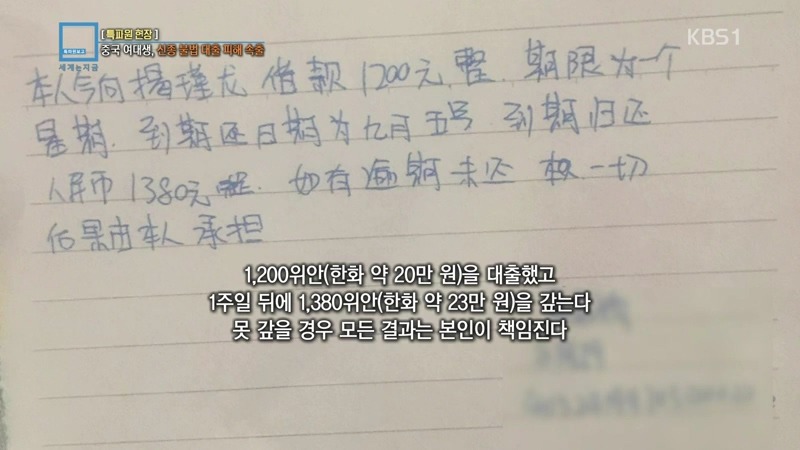 [ 특파원 현장 ]
중국 여대생, 신종 불법 대출 피해 속출
특파원보고
세계는 지금
KBS1
本人今向杨瑾龙 借款 1200元整. 期限为一个
星期. 到期还日期为九月五号 到期归还
人民币 1380元整. 如有逾期未还 一切
后果由本人 承担
1,200위안(한화 약 20만 원)을 대출했고
1주일 뒤에 1,380위안(한화 약 23만 원)을 갚는다
못 갚을 경우 모든 결과는 본인이 책임진다